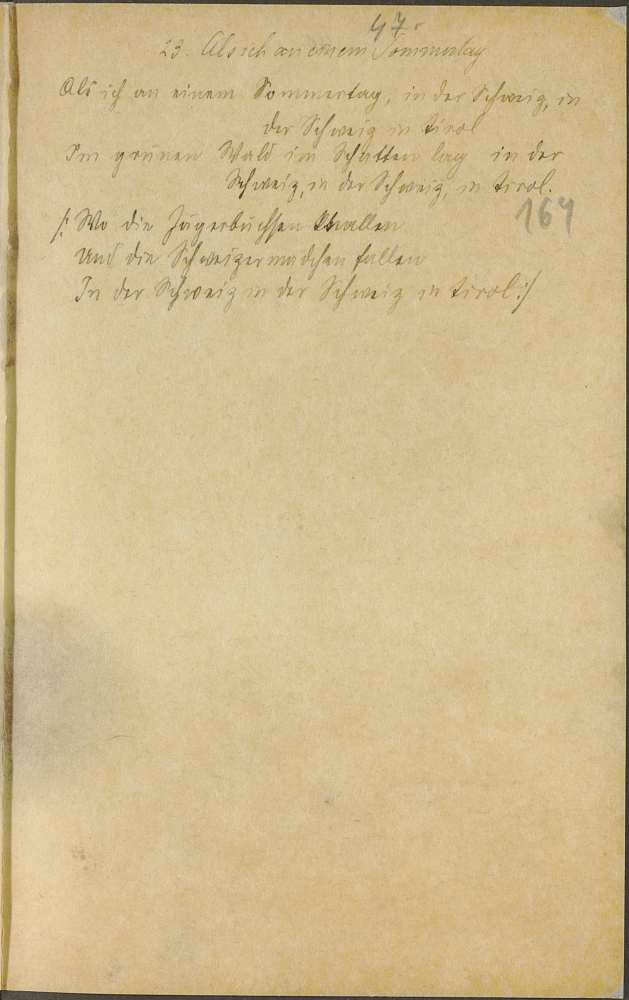 47.
23. Als ich an einem Sommertag
Als ich an einem Sommertag, in der Schweiz, in
der Schweiz in Tirol
Im grünen Wald im Schatten lag in der
Schweiz, in der Schweiz, in Tirol.
164
/: Wo die Jägerbüchsen knallen
Und die Schweizermädchen fallen
In der Schweiz in der Schweiz in Tirol :/